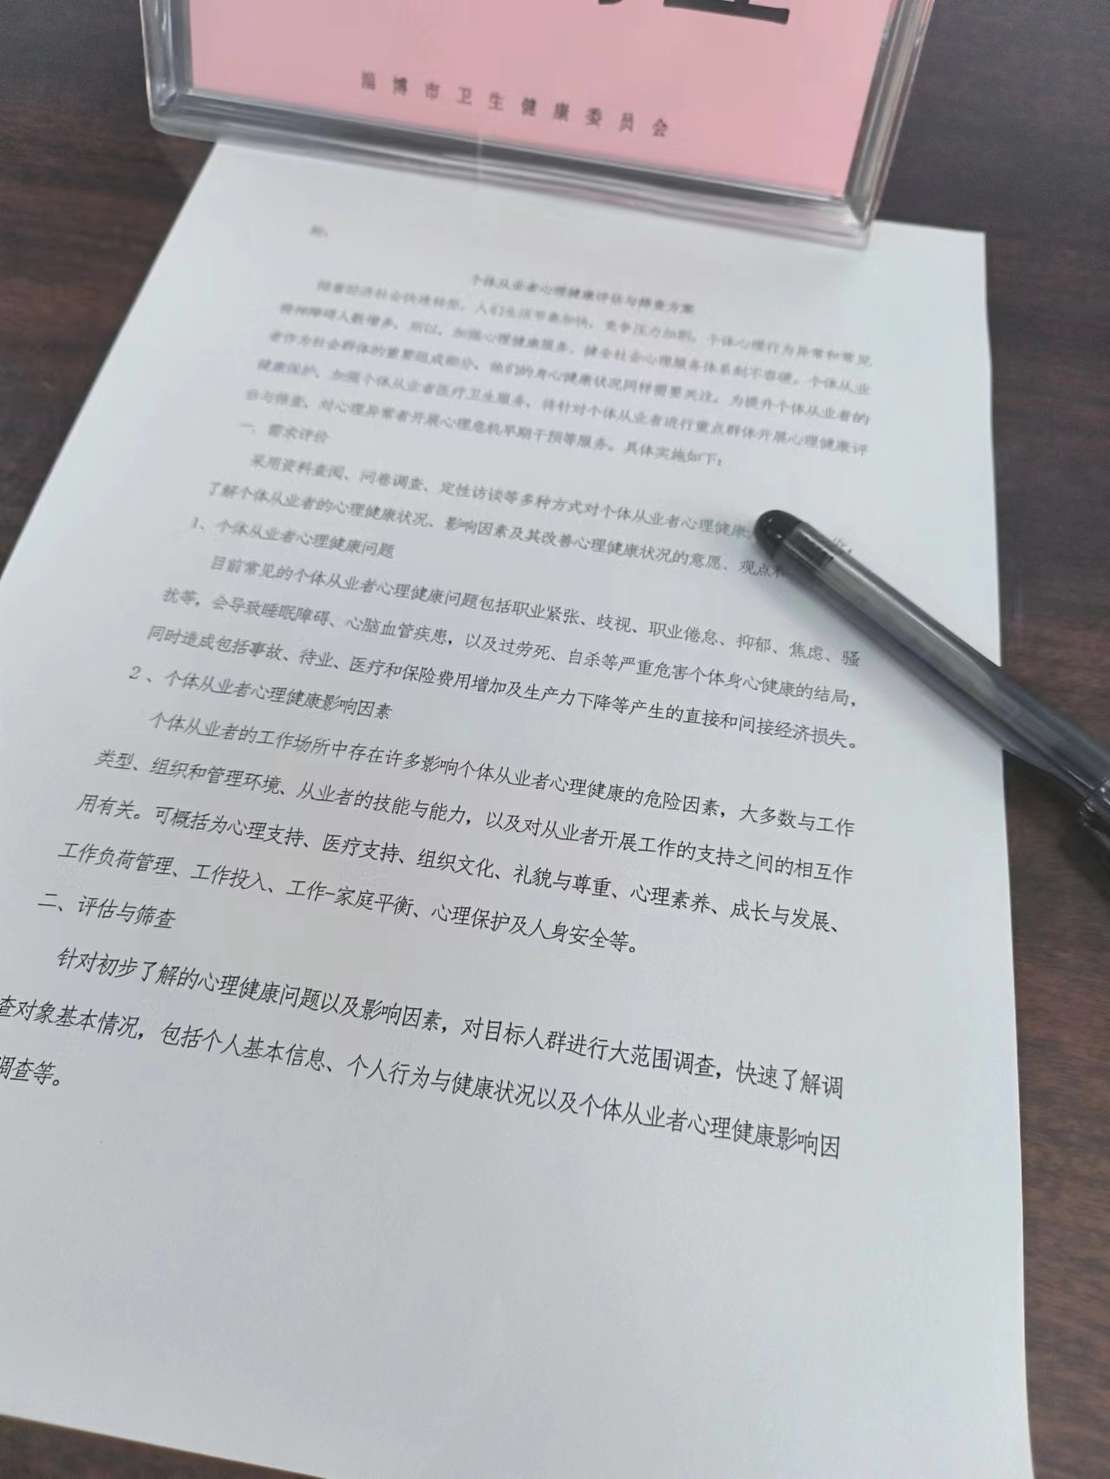 淄博市卫生健康委员会
附:
个体从业者心理健康评估与筛查方案
随着经济社会快速转型，人们生活节奏加快，竞争压力加剧，个体心理行为异常和常见
精神障碍人数增多，所以，加强心理健康服务、健全社会心理服务体系刻不容缓。个体从业
者作为社会群体的重要组成部分，他们的身心健康状况同样需要关注。为提升个体从业者的
健康保护、加强个体从业者医疗卫生服务，将针对个体从业者进行重点群体开展心理健康评
估与筛查，对心理异常者开展心理危机早期干预等服务。具体实施如下：
一、需求评价
采用资料查阅、问卷调查、定性访谈等多种方式对个体从业者心理健康
了解个体从业者的心理健康状况、影响因素及其改善心理健康状况的意愿、观点
1、个体从业者心理健康问题
目前常见的个体从业者心理健康问题包括职业紧张、歧视、职业倦怠、抑郁、焦虑、骚
扰等，会导致睡眠障碍、心脑血管疾患，以及过劳死、自杀等严重危害个体身心健康的结局，
同时造成包括事故、待业、医疗和保险费用增加及生产力下降等产生的直接和间接经济损失。
2、个体从业者心理健康影响因素
个体从业者的工作场所中存在许多影响个体从业者心理健康的危险因素，大多数与工作
类型、组织和管理环境、从业者的技能与能力，以及对从业者开展工作的支持之间的相互作
用有关。可概括为心理支持、医疗支持、组织文化、礼貌与尊重、心理素养、成长与发展、
工作负荷管理、工作投入、工作-家庭平衡、心理保护及人身安全等。
二、评估与筛查
针对初步了解的心理健康问题以及影响因素，对目标人群进行大范围调查，快速了解调
查对象基本情况，包括个人基本信息、个人行为与健康状况以及个体从业者心理健康影响因
调查等。